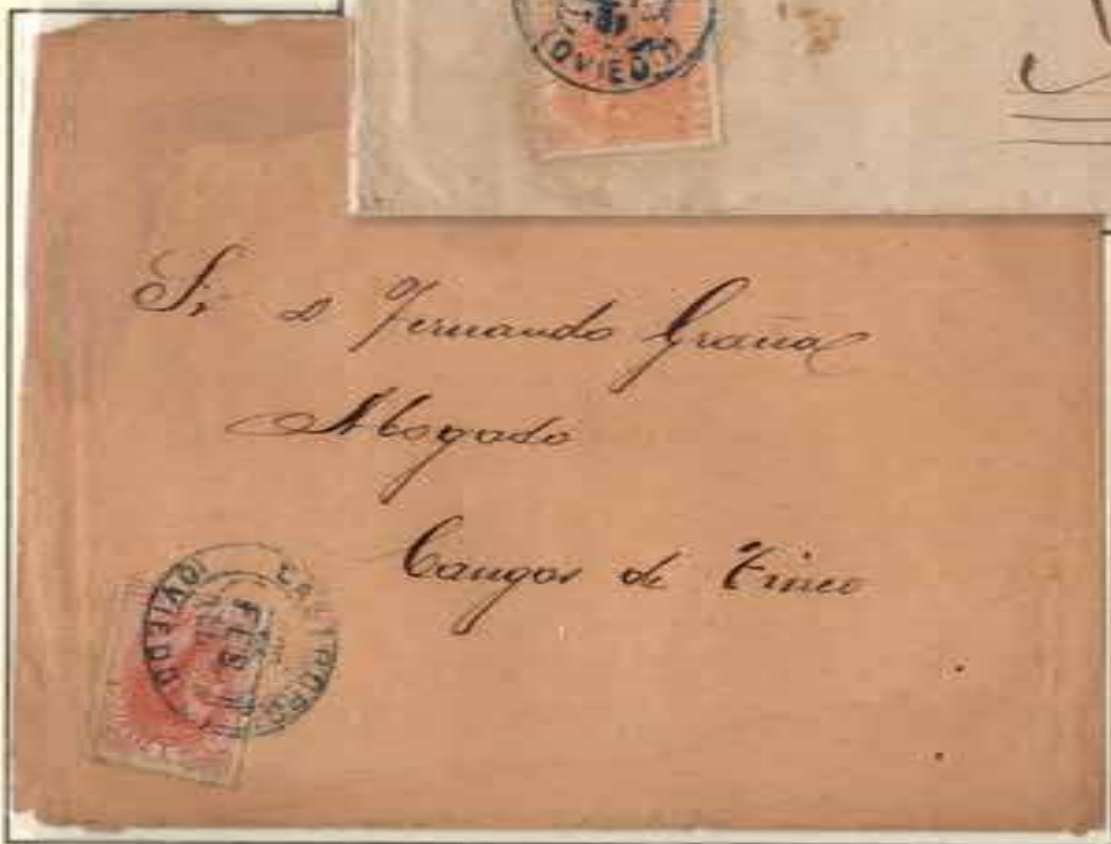 (OVIEDO)
Sr D Fernando Graña
Abogado
Cangas de Tineo
CASTROPOL
FEB
(OVIEDO)